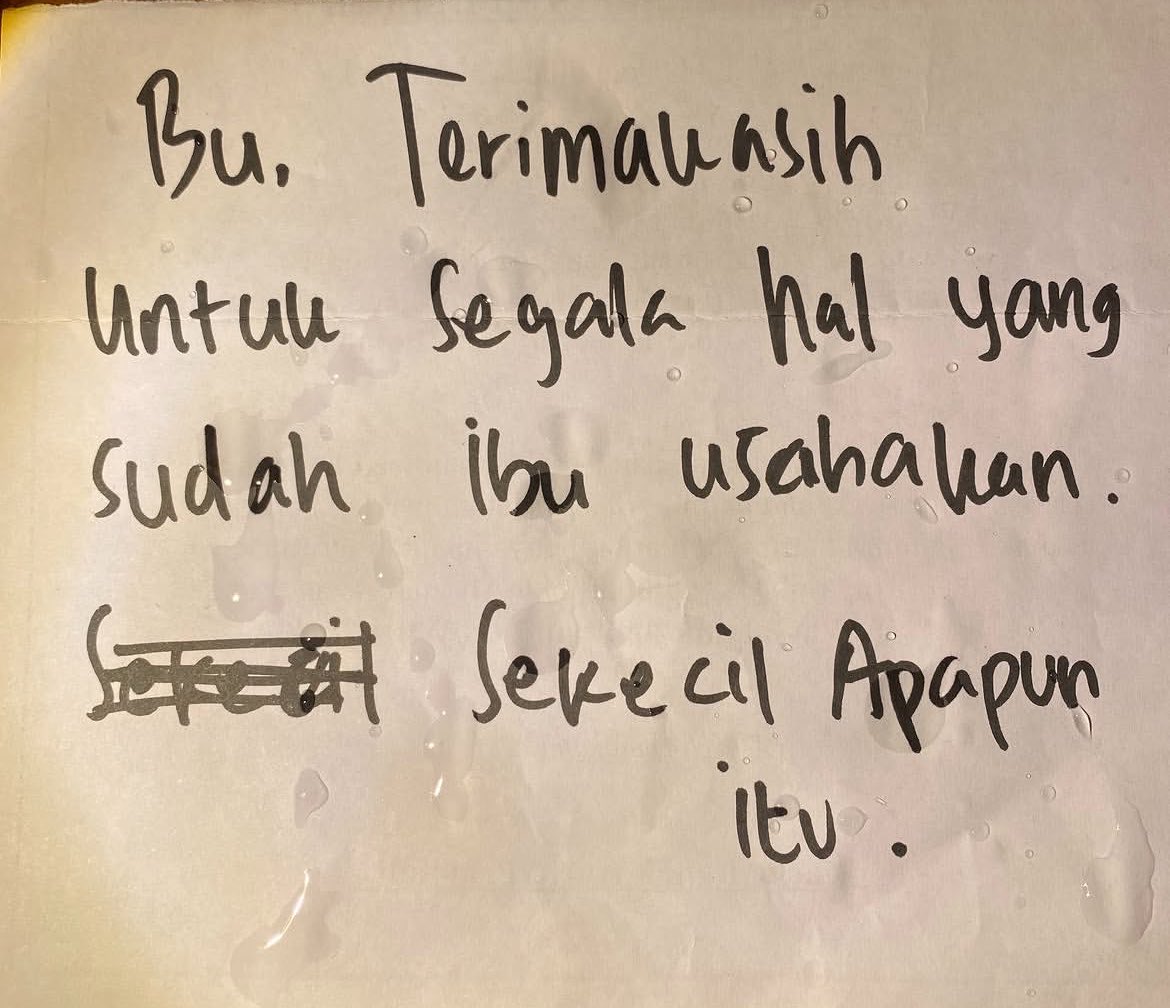 Bu. Terimakasih
untuk segala hal yang
sudah ibu usahakan.
Sekecil Sekecil Apapun
itu.